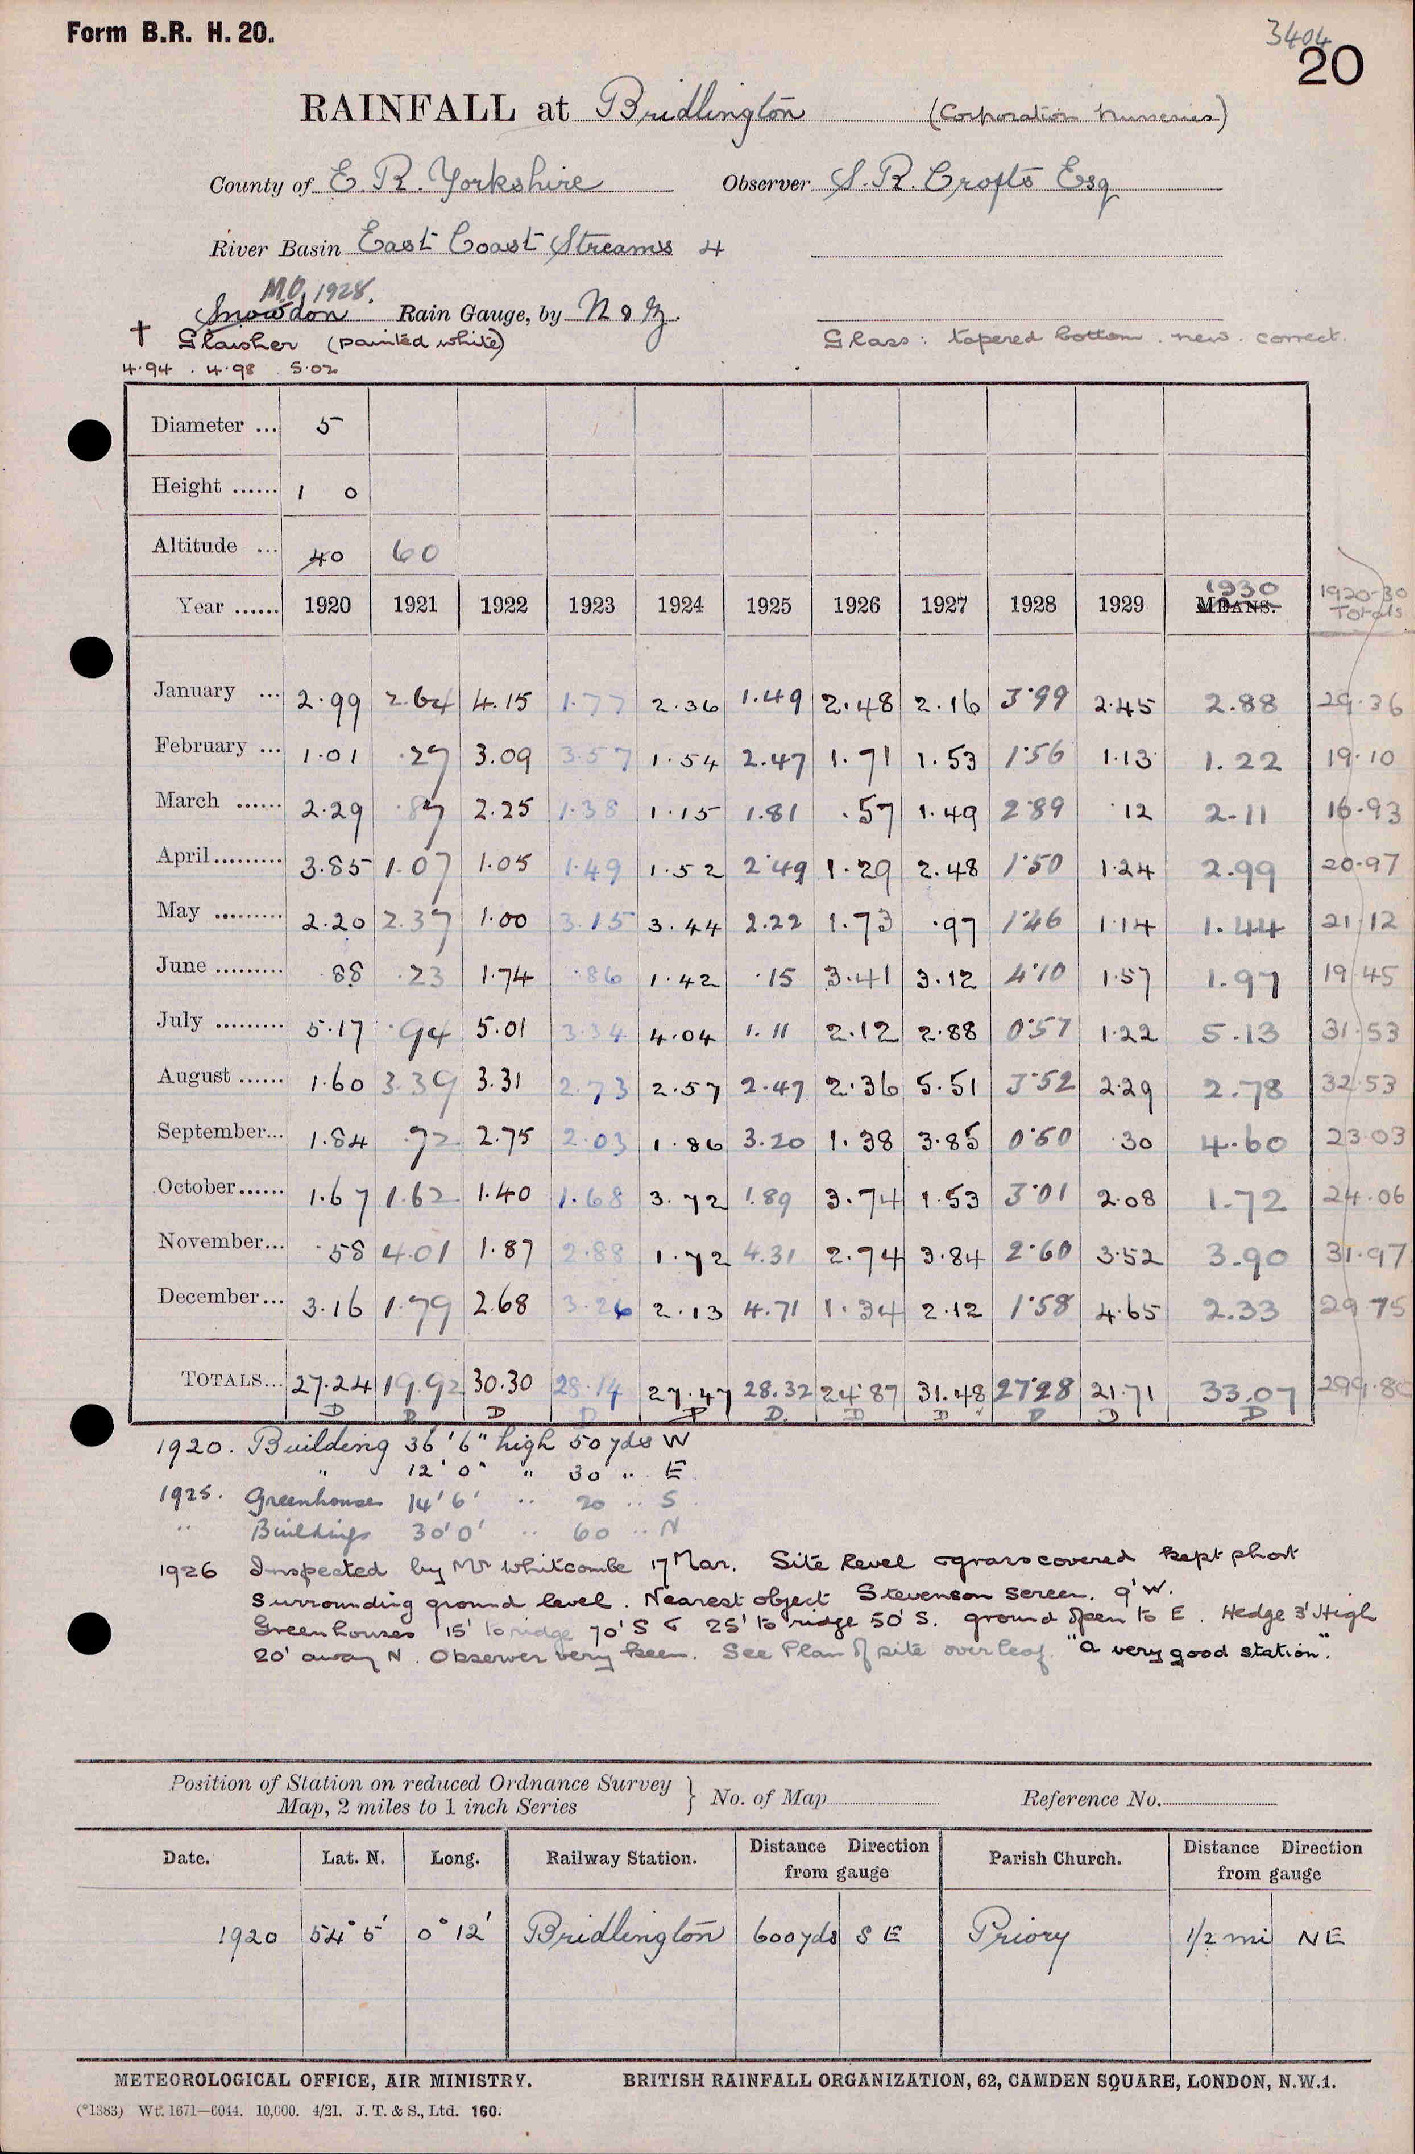 Form B.R. H. 20.
3404
20
RAINFALL at Bridlington (Corporation Nurseries)
County of E R. Yorkshire Observer S. R. Crofts Esq
River Basin East Coast Streams 4
M.O. 1928.
Snowdon Rain Gauge, by N & Z
† Glaisher (painted white) Glass: tapered bottom. new. correct.
4.94 . 4.98 5.02
Diameter ... 5
Height ...... 1 0
Altitude ... 40 60
Year ...... 1920 1921 1922 1923 1924 1925 1926 1927 1928 1929 MEANS. 1930 1920-30 Totals
January ... 2.99 2.64 4.15 1.77 2.36 1.49 2.48 2.16 3.99 2.45 2.88 29.36
February ... 1.01 .27 3.09 3.57 1.54 2.47 1.71 1.53 1.56 1.13 1.22 19.10
March ...... 2.29 .87 2.25 1.38 1.15 1.81 .57 1.49 2.89 .12 2.11 16.93
April......... 3.85 1.07 1.05 1.49 1.52 2.49 1.29 2.48 1.50 1.24 2.99 20.97
May ......... 2.20 2.37 1.00 3.15 3.44 2.22 1.73 .97 1.46 1.14 1.44 21.12
June ......... .88 .23 1.74 .86 1.42 .15 3.41 3.12 4.10 1.57 1.97 19.45
July ......... 5.17 .94 5.01 3.34 4.04 1.11 2.12 2.88 0.57 1.22 5.13 31.53
August ...... 1.60 3.39 3.31 2.73 2.57 2.47 2.36 5.51 3.52 2.29 2.78 32.53
September... 1.84 .72 2.75 2.03 1.86 3.20 1.38 3.85 0.50 .30 4.60 23.03
October...... 1.67 1.62 1.40 1.68 3.72 1.89 3.74 1.53 3.01 2.08 1.72 24.06
November... .58 4.01 1.87 2.88 1.72 4.31 2.74 3.84 2.60 3.52 3.90 31.97
December... 3.16 1.79 2.68 3.26 2.13 4.71 1.34 2.12 1.58 4.65 2.33 29.75
TOTALS... 27.24 19.92 30.30 28.14 27.47 28.32 24.87 31.48 27.28 21.71 33.07 299.80
D D D D D D. D D D D D
1920. Building 36'6" high 50 yds W
" 12'0" " 30 " E
1925. Greenhouses 14'6' " 20 " S
" Buildings 30'0' " 60 " N
1926 Inspected by Mr Whitcombe 17 Mar. Site level & grass covered kept short
Surrounding ground level. Nearest object Stevenson Screen. 9'W.
Greenhouses 15' to ridge 70'S & 25' to ridge 50'S. ground open to E. Hedge 3' High
20' away N. Observer very keen. See Plan of site overleaf. "a very good station".
Position of Station on reduced Ordnance Survey Map, 2 miles to 1 inch Series } No. of Map Reference No.
Date. Lat. N. Long. Railway Station. Distance Direction from gauge Parish Church. Distance Direction from gauge
1920 54° 5' 0° 12' Bridlington 600 yds S E Priory 1/2 mi NE
METEOROLOGICAL OFFICE, AIR MINISTRY. BRITISH RAINFALL ORGANIZATION, 62, CAMDEN SQUARE, LONDON, N.W.1.
(*1383) Wt. 1671—6044. 10,000. 4/21. J. T. & S., Ltd. 160.